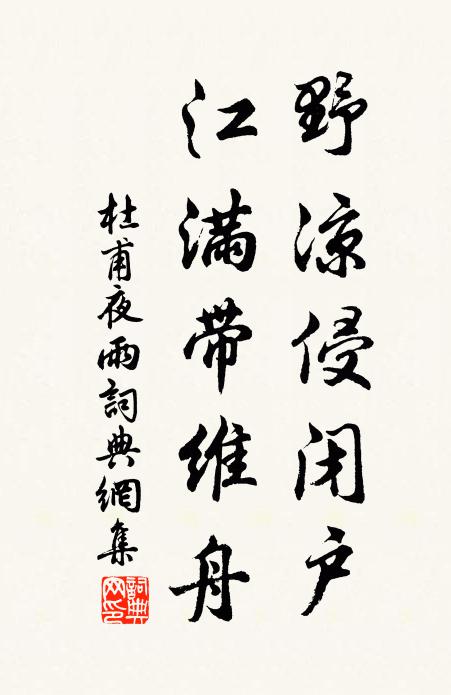 野凉侵闭户
江满带维舟
杜甫夜雨詞典網集
詞典网印